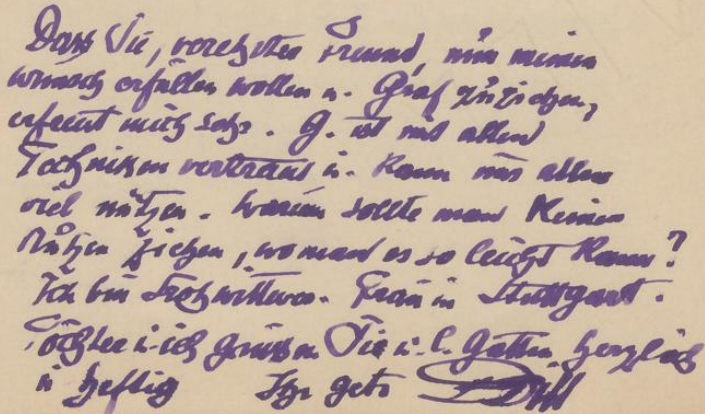 Dass Sie, verehrter Freund, nun meinen
Wunsch erfüllen wollen u. Graf zuziehen,
erfreut mich sehr. G. ist mit allen
Techniken vertraut u. kann uns allen
viel nützen. Warum sollte man keinen
Nutzen ziehen, wo man es so leicht kann?
Ich bin Strohwittwer. Frau in Stuttgart.
Töchter u. ich grüssen Sie u. l. Gattin herzlich
u. heftig Ihr getr.